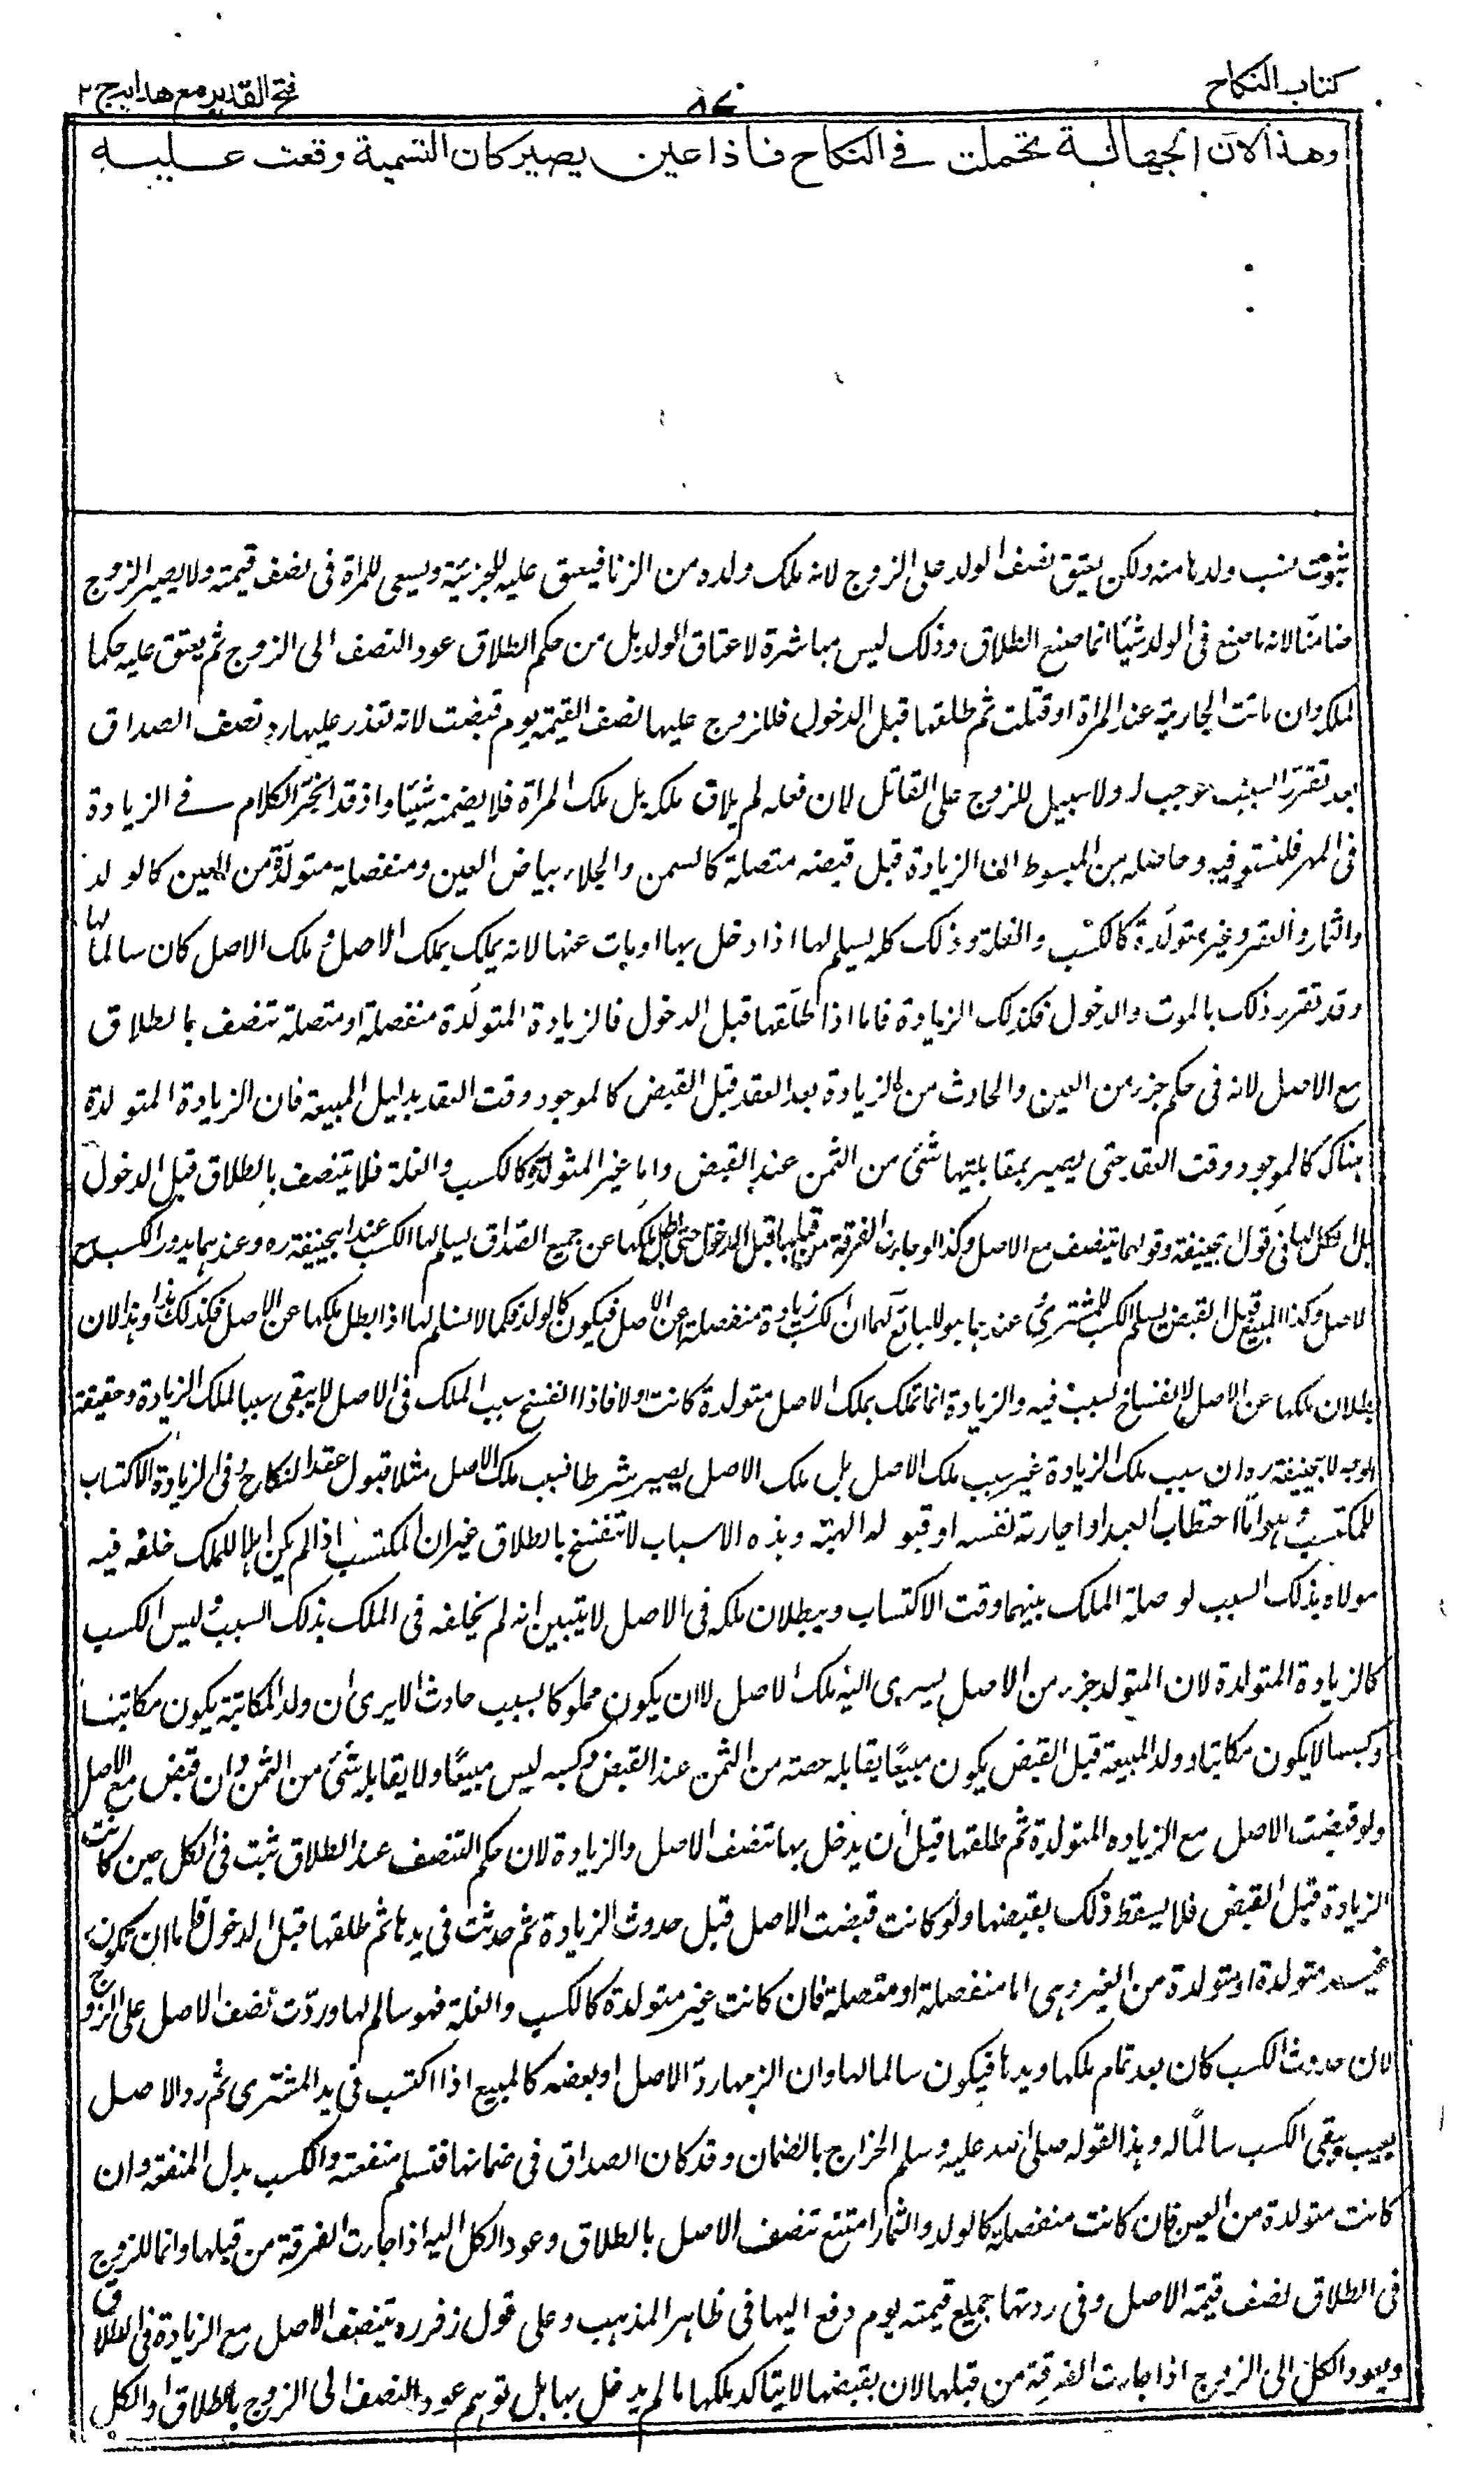 كتاب النكاح
فتح القدير مع هدايه ج ٢
وهذا لان الجهالة تحملت في النكاح فاذا عين يصير كان التسمية وقعت عليه
ثبوت نسب ولدها منه ولكن يعتق نصف الولد على الزوج لانه ملك ولده من الزنا فيعتق عليه للجزئية ويسعى للمرأة فى نصف قيمته ولا يصير الزوج
ضامنا لانه ما صنع فى الولد شيئا انما صنع الطلاق وذلك ليس مباشرة لاعتاق الولد بل من حكم الطلاق عود النصف الى الزوج ثم يعتق عليه حكما
لملكه وان ماتت الجارية عند المرأة او قتلت ثم طلقها قبل الدخول فللزوج عليها نصف القيمة يوم قبضت لانه تعذر عليها رد نصف الصداق
بعد تقرر السبب الموجب له ولا سبيل للزوج على القاتل لان فعله لم يلاق ملكه بل ملك المرأة فلا يضمنه شيئا واذ قد انجر الكلام في الزيادة
فى المهر فلنستوفيه وحاصله من المبسوط ان الزيادة قبل قبضه متصلة كالسمن والجلاء بياض العين ومنفصلة متولدة من العين كالولد
والثمار والعقر وغير متولدة كالكسب والغلة وذلك كله يسلم لها اذا دخل بها او مات عنها لانه يملك بملك الاصل و ملك الاصل كان سالما لها
وقد تقرر ذلك بالموت والدخول فكذلك الزيادة فاما اذا طلقها قبل الدخول فالزيادة المتولدة منفصلة او متصلة تتنصف بالطلاق
مع الاصل لانه فى حكم جزء من العين والحادث من الزيادة بعد العقد قبل القبض كالموجود وقت العقد بدليل المبيعة فان الزيادة المتولدة
هناك كالموجود وقت العقد حتى يصير بمقابلتها شئ من الثمن عند القبض واما غير المتولدة كالكسب والغلة فلا يتنصف بالطلاق قبل الدخول
بل الكل لها فى قول ابى حنيفة وقولهما يتنصف مع الاصل وكذا لو جاءت الفرقة من قبلها قبل الدخول حتى بطل ملكها عن جميع الصداق يسلم لها الكسب عند ابى حنيفة ره وعندهما يدور الكسب مع
الاصل وكذا المبيع قبل القبض يسلم الكسب للمشترى و عندهما هو للبائع لهما ان الكسب زيادة منفصلة عن الاصل فيكون كالولد فكما لا يسلم لها اذا بطل ملكها عن الاصل فكذلك هذا وهذا لان
بطلان ملكها عن الاصل لانفساخ السبب فيه والزيادة انما تملك بملك الاصل متولدة كانت او لا فاذا انفسخ سبب الملك فى الاصل لا يبقى سببا لملك الزيادة وحقيقة
الوجه لابى حنيفة ره ان سبب ملك الزيادة غير سبب ملك الاصل بل ملك الاصل يصير شرطا فسبب ملك الاصل مثلا قبول عقد النكاح و فى الزيادة الاكتساب
للمكتسب و هو اما احتطاب العبد او اجارته نفسه او قبوله الهبة وبذه الاسباب لا تنفسخ بالطلاق غير ان المكتسب اذا لم يكن اهلا للملك خلفه فيه
مولاه بذلك السبب لوصلة الملك بينهما وقت الاكتساب وببطلان ملكه فى الاصل لا يتبين انه لم يخلفه فى الملك بذلك السبب و ليس الكسب
كالزيادة المتولدة لان المتولد جزء من الاصل يسرى اليه ملك الاصل لا ان يكون مملوكا بسبب حادث الا يرى ان ولد المكاتبة يكون مكاتبا
وكسبها لا يكون مكاتبا وولد المبيعة قبل القبض يكون مبيعا يقابله حصته من الثمن عند القبض وكسبه ليس مبيعا ولا يقابله شئ من الثمن وان قبض مع الاصل
ولو قبضت الاصل مع الزيادة المتولدة ثم طلقها قبل ان يدخل بها تنصف الاصل والزيادة لان حكم التنصف عند الطلاق ثبت فى الكل حين كانت
الزيادة قبل القبض فلا يسقط ذلك بقبضها ولو كانت قبضت الاصل قبل حدوث الزيادة ثم حدثت فى يدها ثم طلقها قبل الدخول فاما ان تكون
غير متولدة او متولدة من العين وهى اما منفصلة او متصلة فان كانت غير متولدة كالكسب والغلة فهو سالم لها وردت نصف الاصل على الزوج
لان حدوث الكسب كان بعد تمام ملكها ويدها فيكون سالما لها وان الزمها رد الاصل او بعضه كالمبيع اذا اكتسب فى يد المشترى ثم رد الاصل
بعيب يبقى الكسب سالما له وهذا لقوله صلى الله عليه وسلم الخراج بالضمان وقد كان الصداق فى ضمانها فتسلم منفعته والكسب بدل المنفعة وان
كانت متولدة من العين فان كانت منفصلة كالولد والثمار امتنع تنصف الاصل بالطلاق وعود الكل اليه اذا جاءت الفرقة من قبلها وانما للزوج
فى الطلاق نصف قيمة الاصل وفى ردتها جميع قيمته يوم دفع اليها فى ظاهر المذهب وعلى قول زفر ره يتنصف الاصل مع الزيادة فى الطلاق
ويعود الكل الى الزوج اذا جاءت الفرقة من قبلها لان بقبضها لا يتاكد ملكها ما لم يدخل بها بل توهم عود النصف الى الزوج بالطلاق او الكل